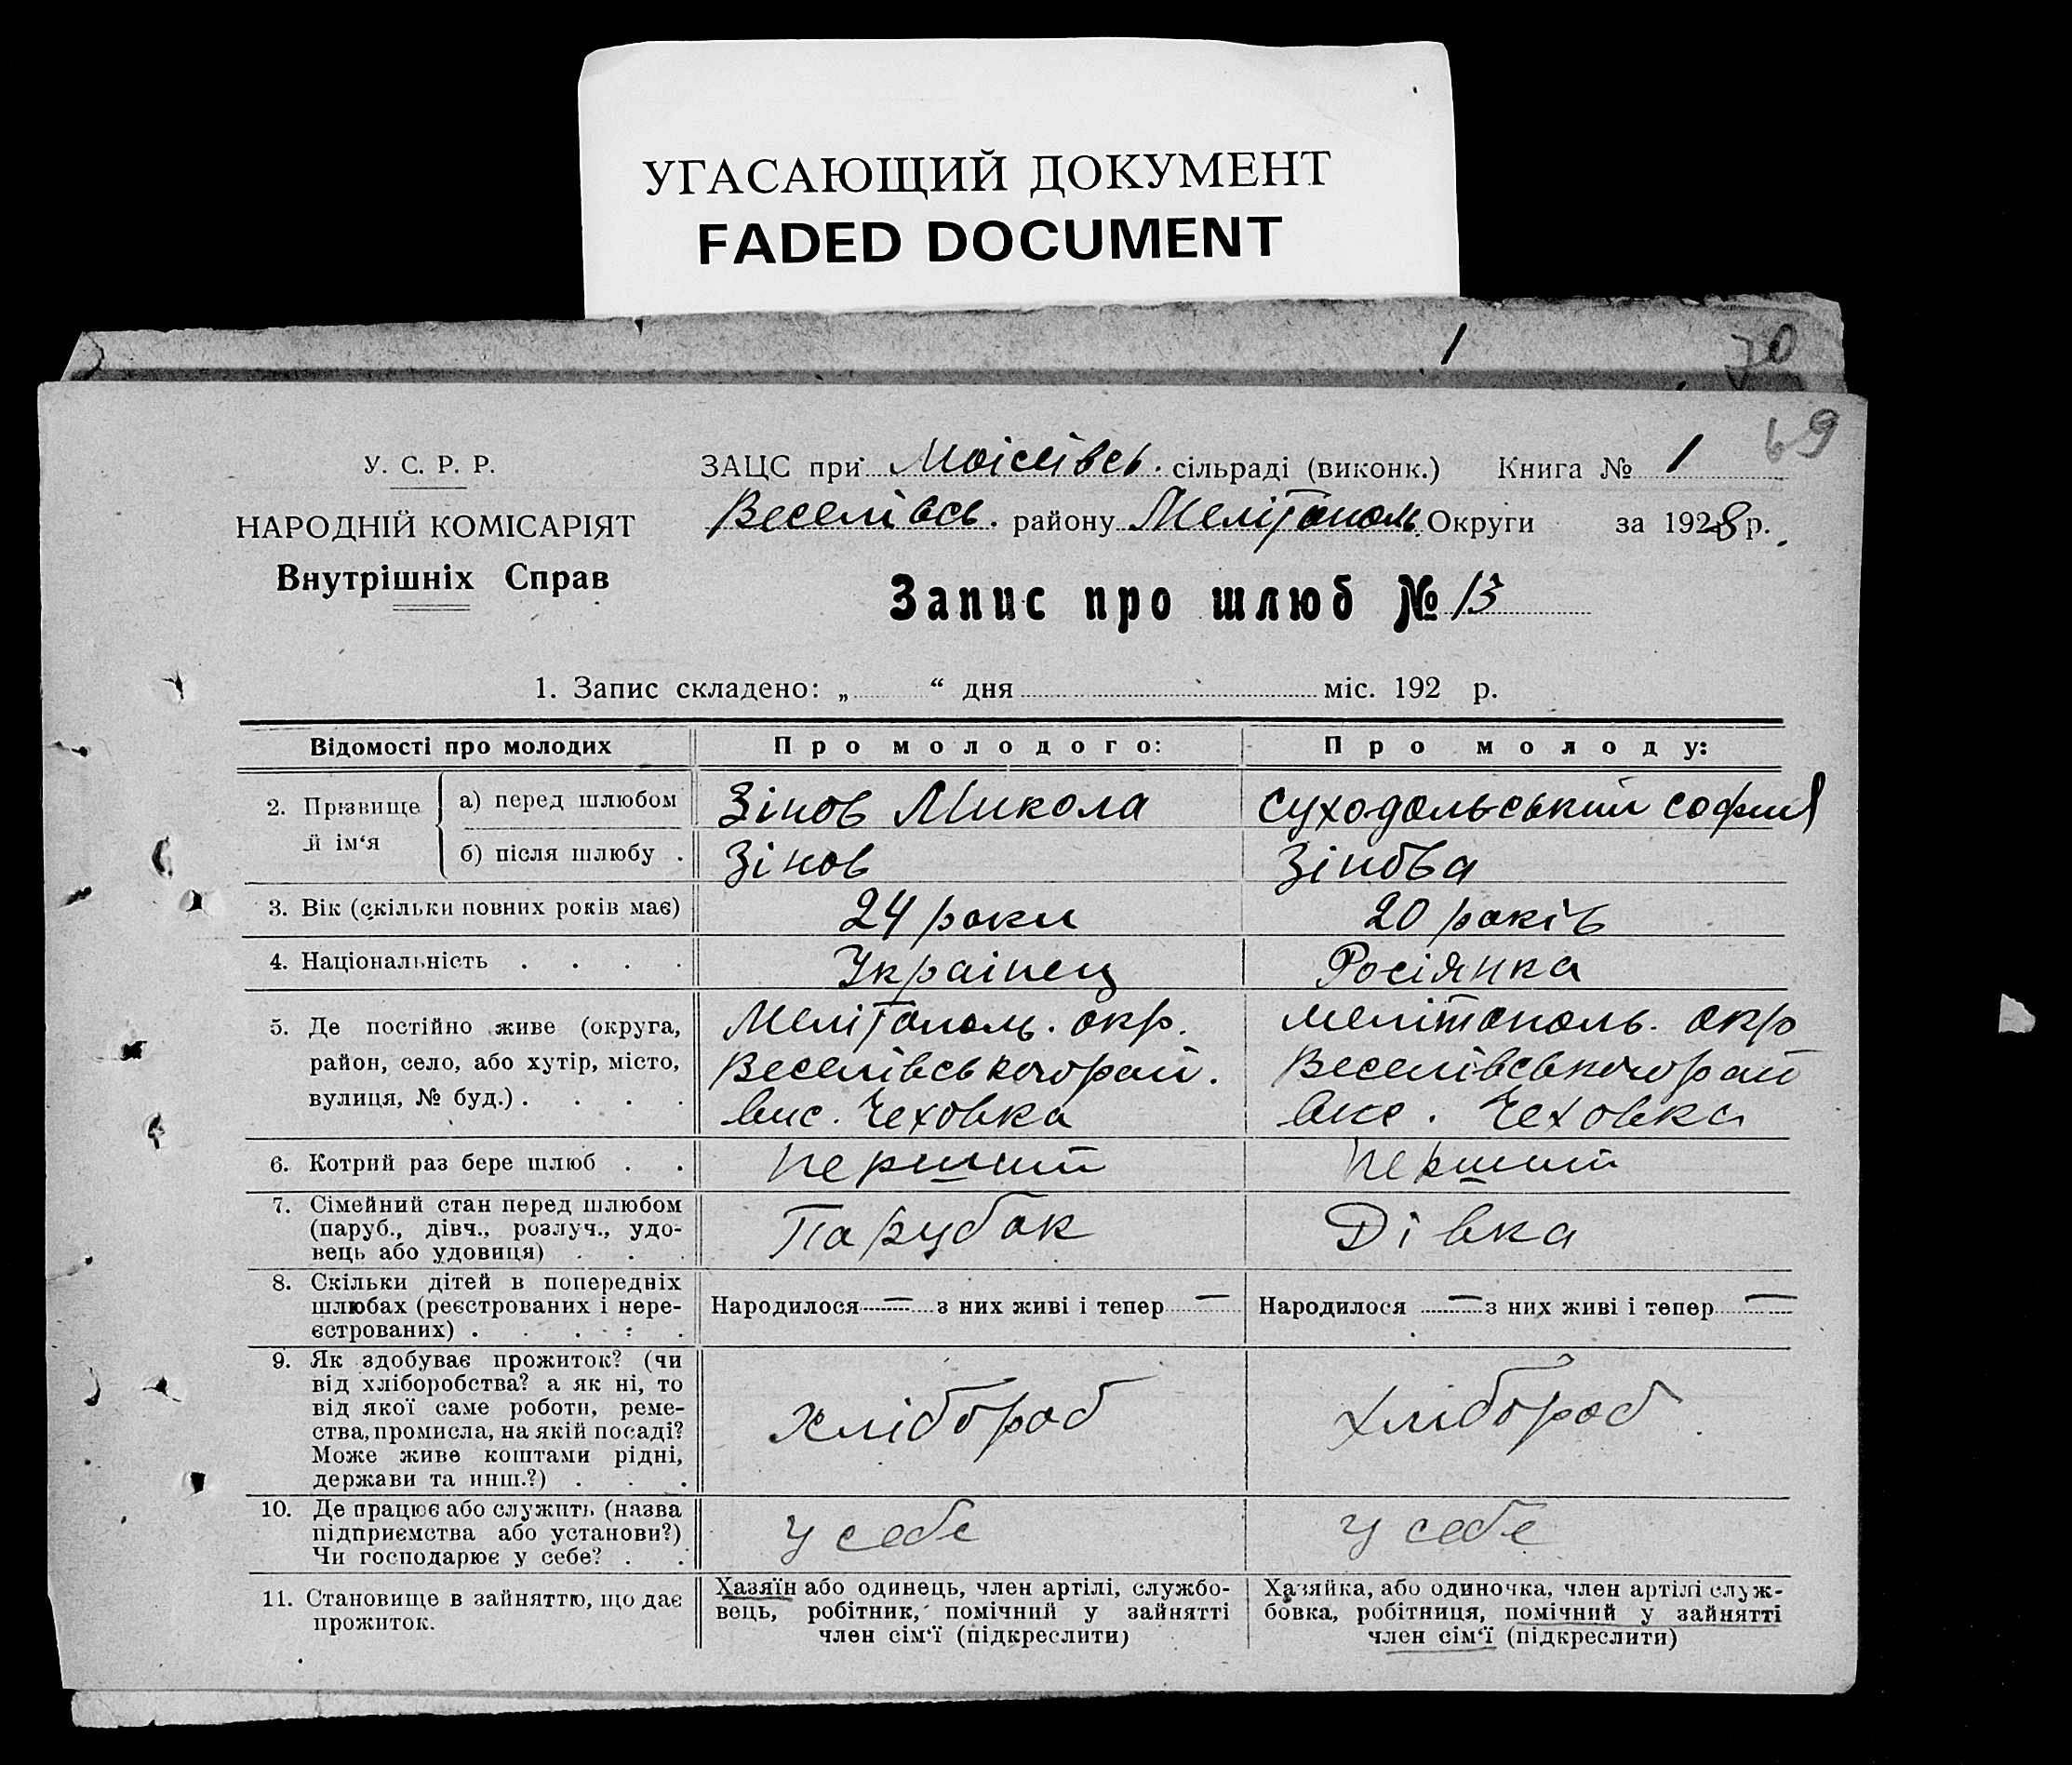 УГАСАЮЩИЙ ДОКУМЕНТ
FADED DOCUMENT
1 70
69
У. С. Р. Р.
НАРОДНІЙ КОМІСАРІЯТ
Внутрішніх Справ
ЗАЦС при сільраді (виконк.) Книга № 1
Веселівсь. району Мелітополь. Округи за 1928 р.
Запис про шлюб № 13
1. Запис складено: „ “ дня міс. 192 р.
Відомості про молодих
Про молодого:
Про молоду:
2. Прізвище й ім‘я
а) перед шлюбом
Зінов Микола
Суходольський София
б) після шлюбу .
Зінов
Зінова
3. Вік (скільки повних років має)
24 роки
20 років
4. Національність . . . .
Українец
Росіянка
5. Де постійно живе (округа,
район, село, або хутір, місто,
вулиця, № буд.) . . . .
Мелітополь. окр.
Веселівського рай.
вис. Чеховка
Мелітополь. окр
Веселівського рай
вис. Чеховка
6. Котрий раз бере шлюб . .
перший
перший
7. Сімейний стан перед шлюбом
(паруб., дівч., розлуч., удо-
вець або удовиця) . . .
Парубок
Дівка
8. Скільки дітей в попередніх
шлюбах (реєстрованих і нере-
єстрованих) . . . . .
Народилося — з них живі і тепер —
Народилося — з них живі і тепер —
9. Як здобуває прожиток? (чи
від хліборобства? а як ні, то
від якої саме роботи, реме-
ства, промисла, на якій посаді?
Може живе коштами рідні,
держави та инш.?) . . .
хлібороб
хлібороб
10. Де працює або служить (назва
підприємства або установи?)
Чи господарює у себе? . .
у себе
у себе
11. Становище в зайняттю, що дає
прожиток.
Хазяїн або одинець, член артілі, службо-
вець, робітник, помічний у зайнятті
член сім‘ї (підкреслити)
Хазяйка, або одиночка, член артілі служ-
бовка, робітниця, помічний у зайнятті
член сім‘ї (підкреслити)